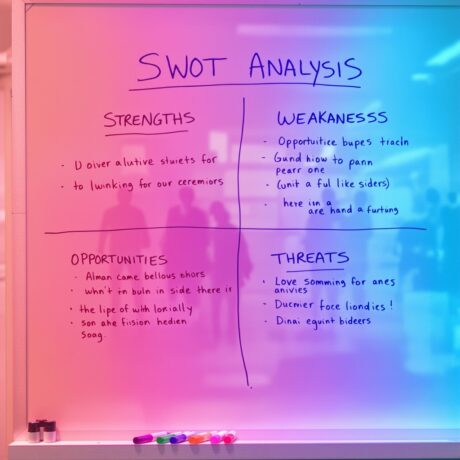 SWOT ANALYSIS
STRENGTHS
- D oiver alutive stuiets for
- to lwinking for our ceremiors
WEAKANESSS
- Opportuitice bupes tracln
- Gund hiow to pann
pearr one
- (unit a ful like siders)
- here iin a
are hand a furtung
OPPORTUNITIES
- Alman came bellous thors
- whn't in buln in side there is
- the lipe of with lorially
- son ahe fission hedien
Soag.
THREATS
- Love somming for anes
anivies
- Ducmier foce liondies!
- Dinai eguint bideers